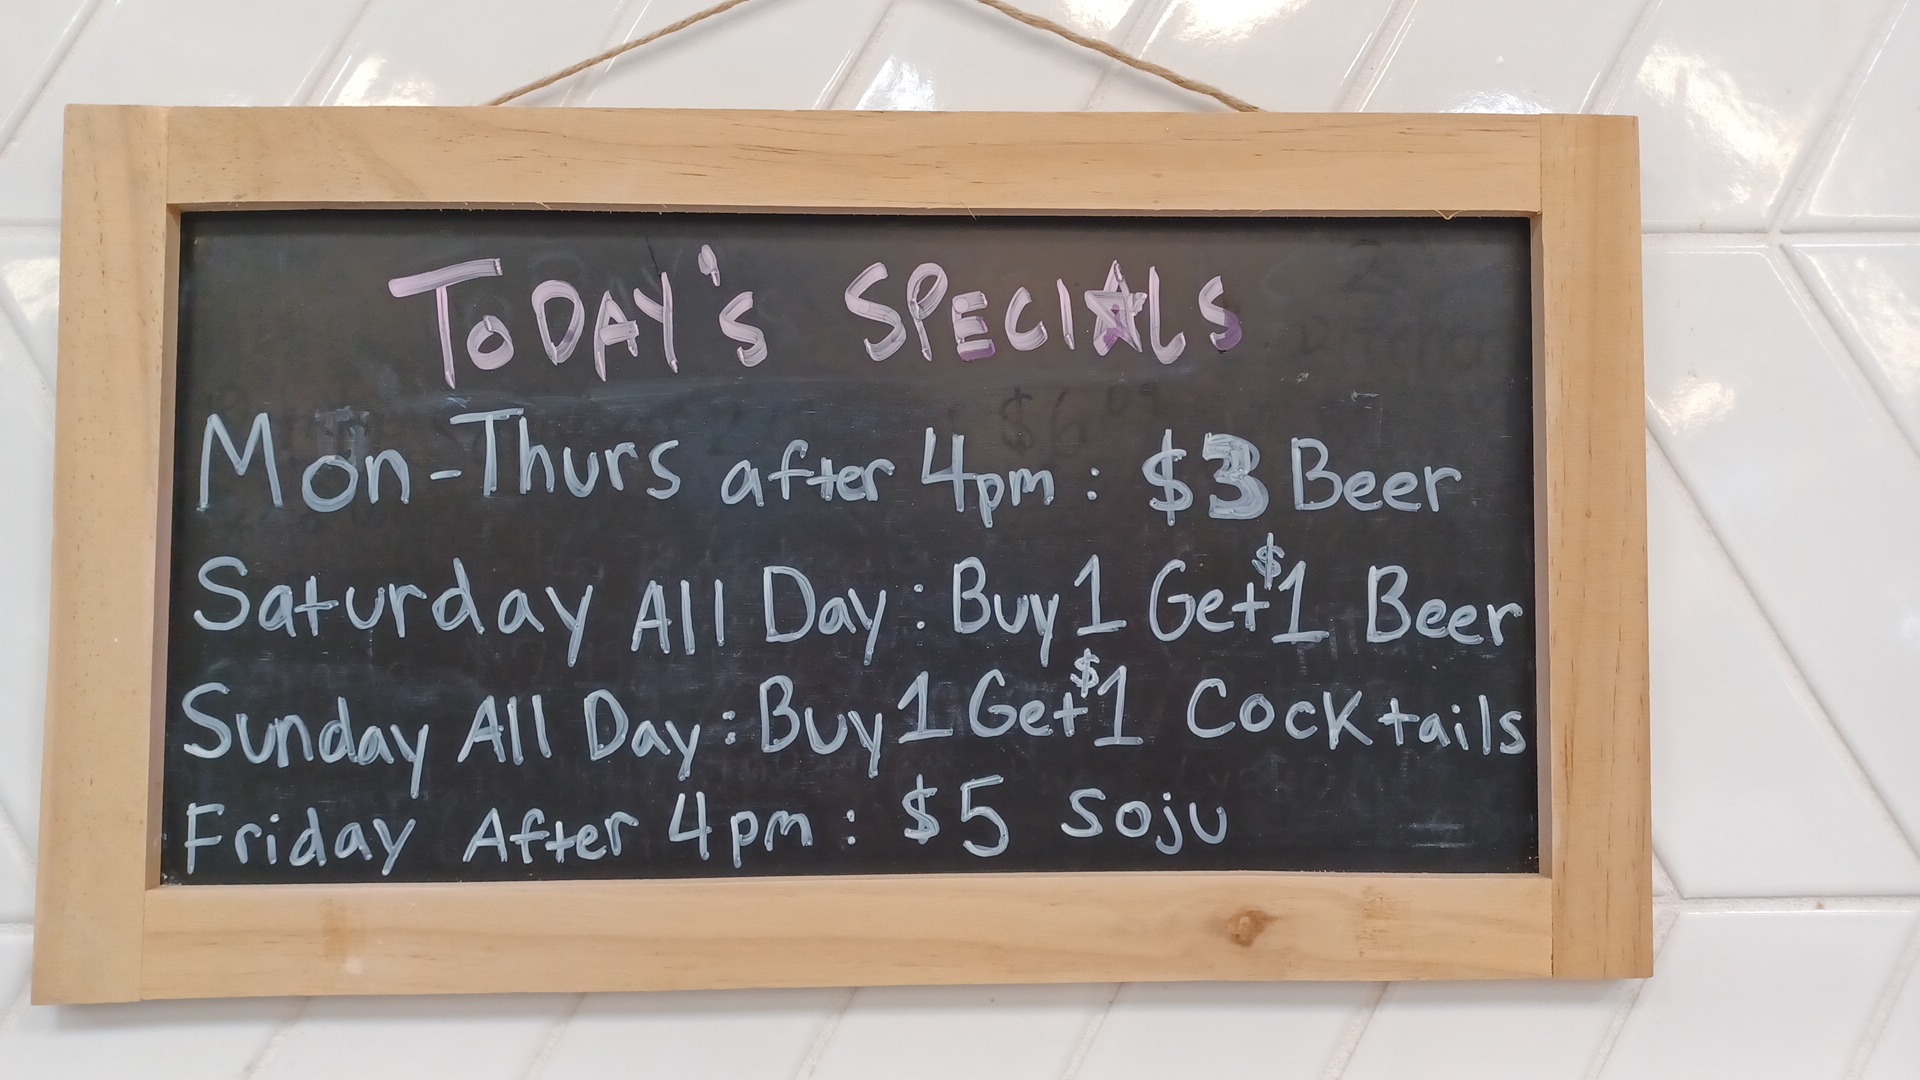 TODAY'S SPECIALS
Mon-Thurs after 4pm : $3 Beer
Saturday All Day : Buy 1 Get $1 Beer
Sunday All Day : Buy 1 Get $1 Cocktails
Friday After 4pm : $5 Soju